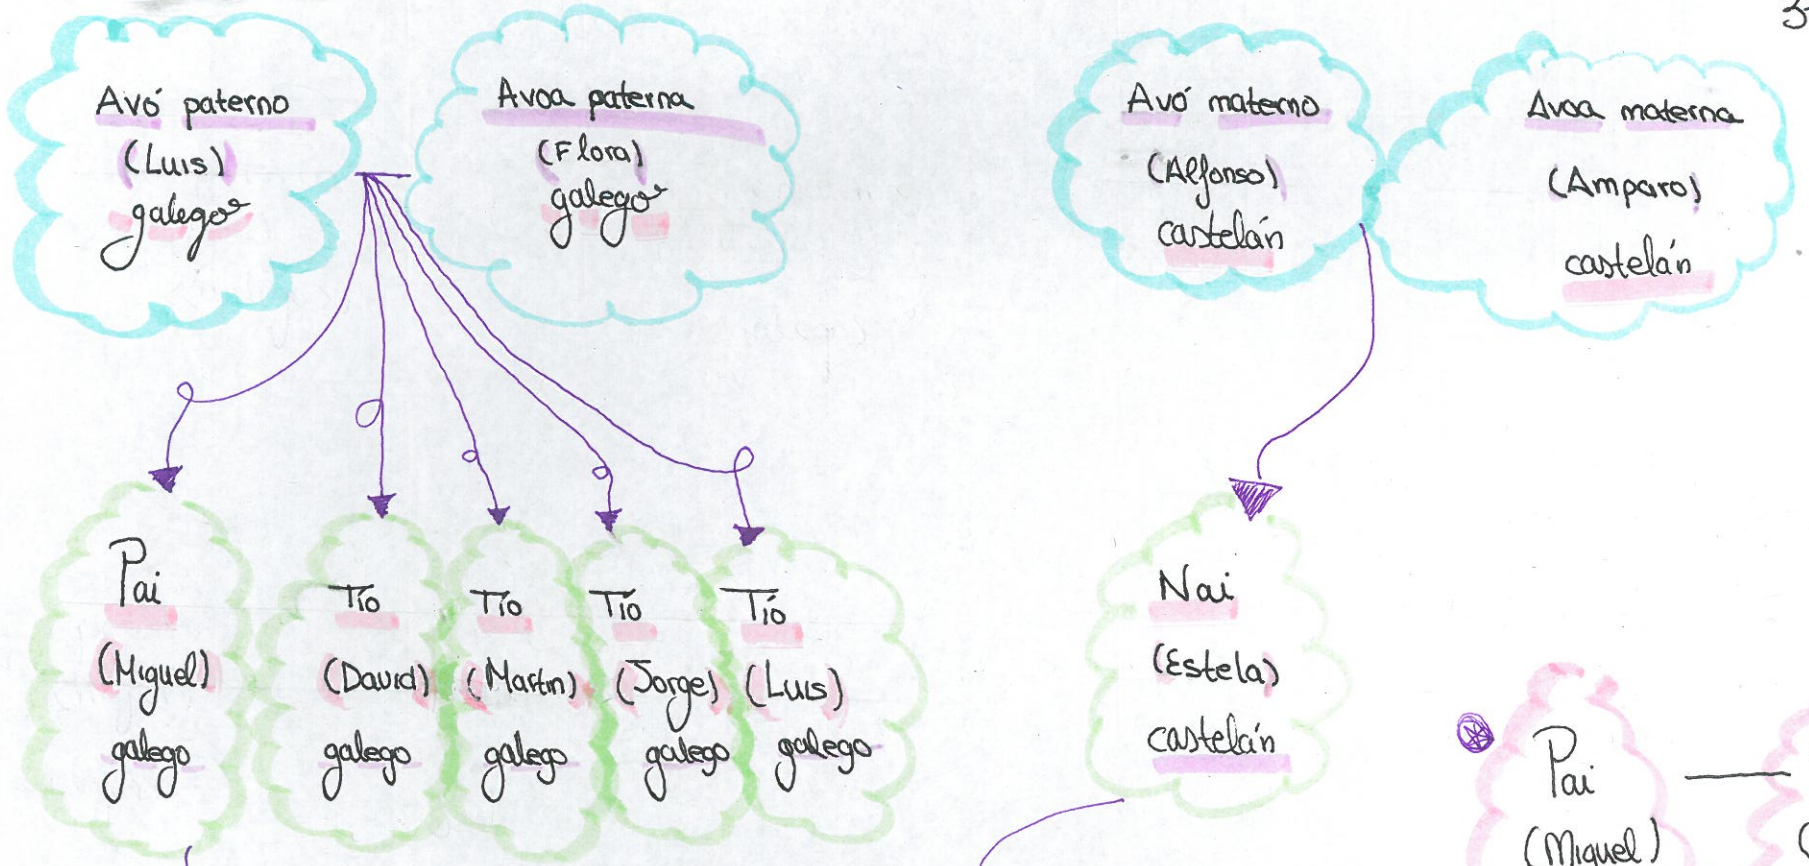 Avó paterno
(Luis)
galego
Avoa paterna
(Flora)
galego
Avó materno
(Alfonso)
castelán
Avoa materna
(Amparo)
castelán
Pai
(Miguel)
galego
Tío
(David)
galego
Tío
(Martín)
galego
Tío
(Jorge)
galego
Tío
(Luis)
galego
Nai
(Estela)
castelán
Pai
(Miguel)